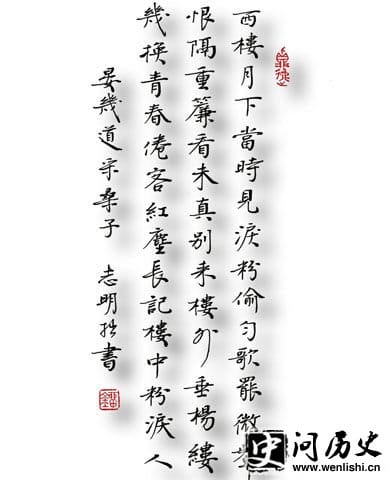 西樓月下當時見淚粉偷勻歌罷微
恨隔重簾看未真別來樓外垂楊縷
幾換青春倦客紅塵長記樓中粉淚人
晏幾道采桑子 志明拙書
史问历史
www.wenlishi.cn